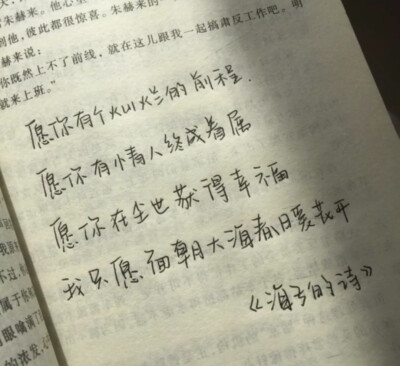 朱赫来。他心里
到他,彼此都很惊喜。朱赫来的
赫来说:
你既然上不了前线,就在这儿跟我一起搞肃反工作吧。明
就来上班。”
愿你有个灿烂的前程.
愿你有情人终成眷属
愿你在尘世获得幸福
我只愿面朝大海春暖花开
《海子的诗》
不过,
属于
眼噙满了
的浓发,